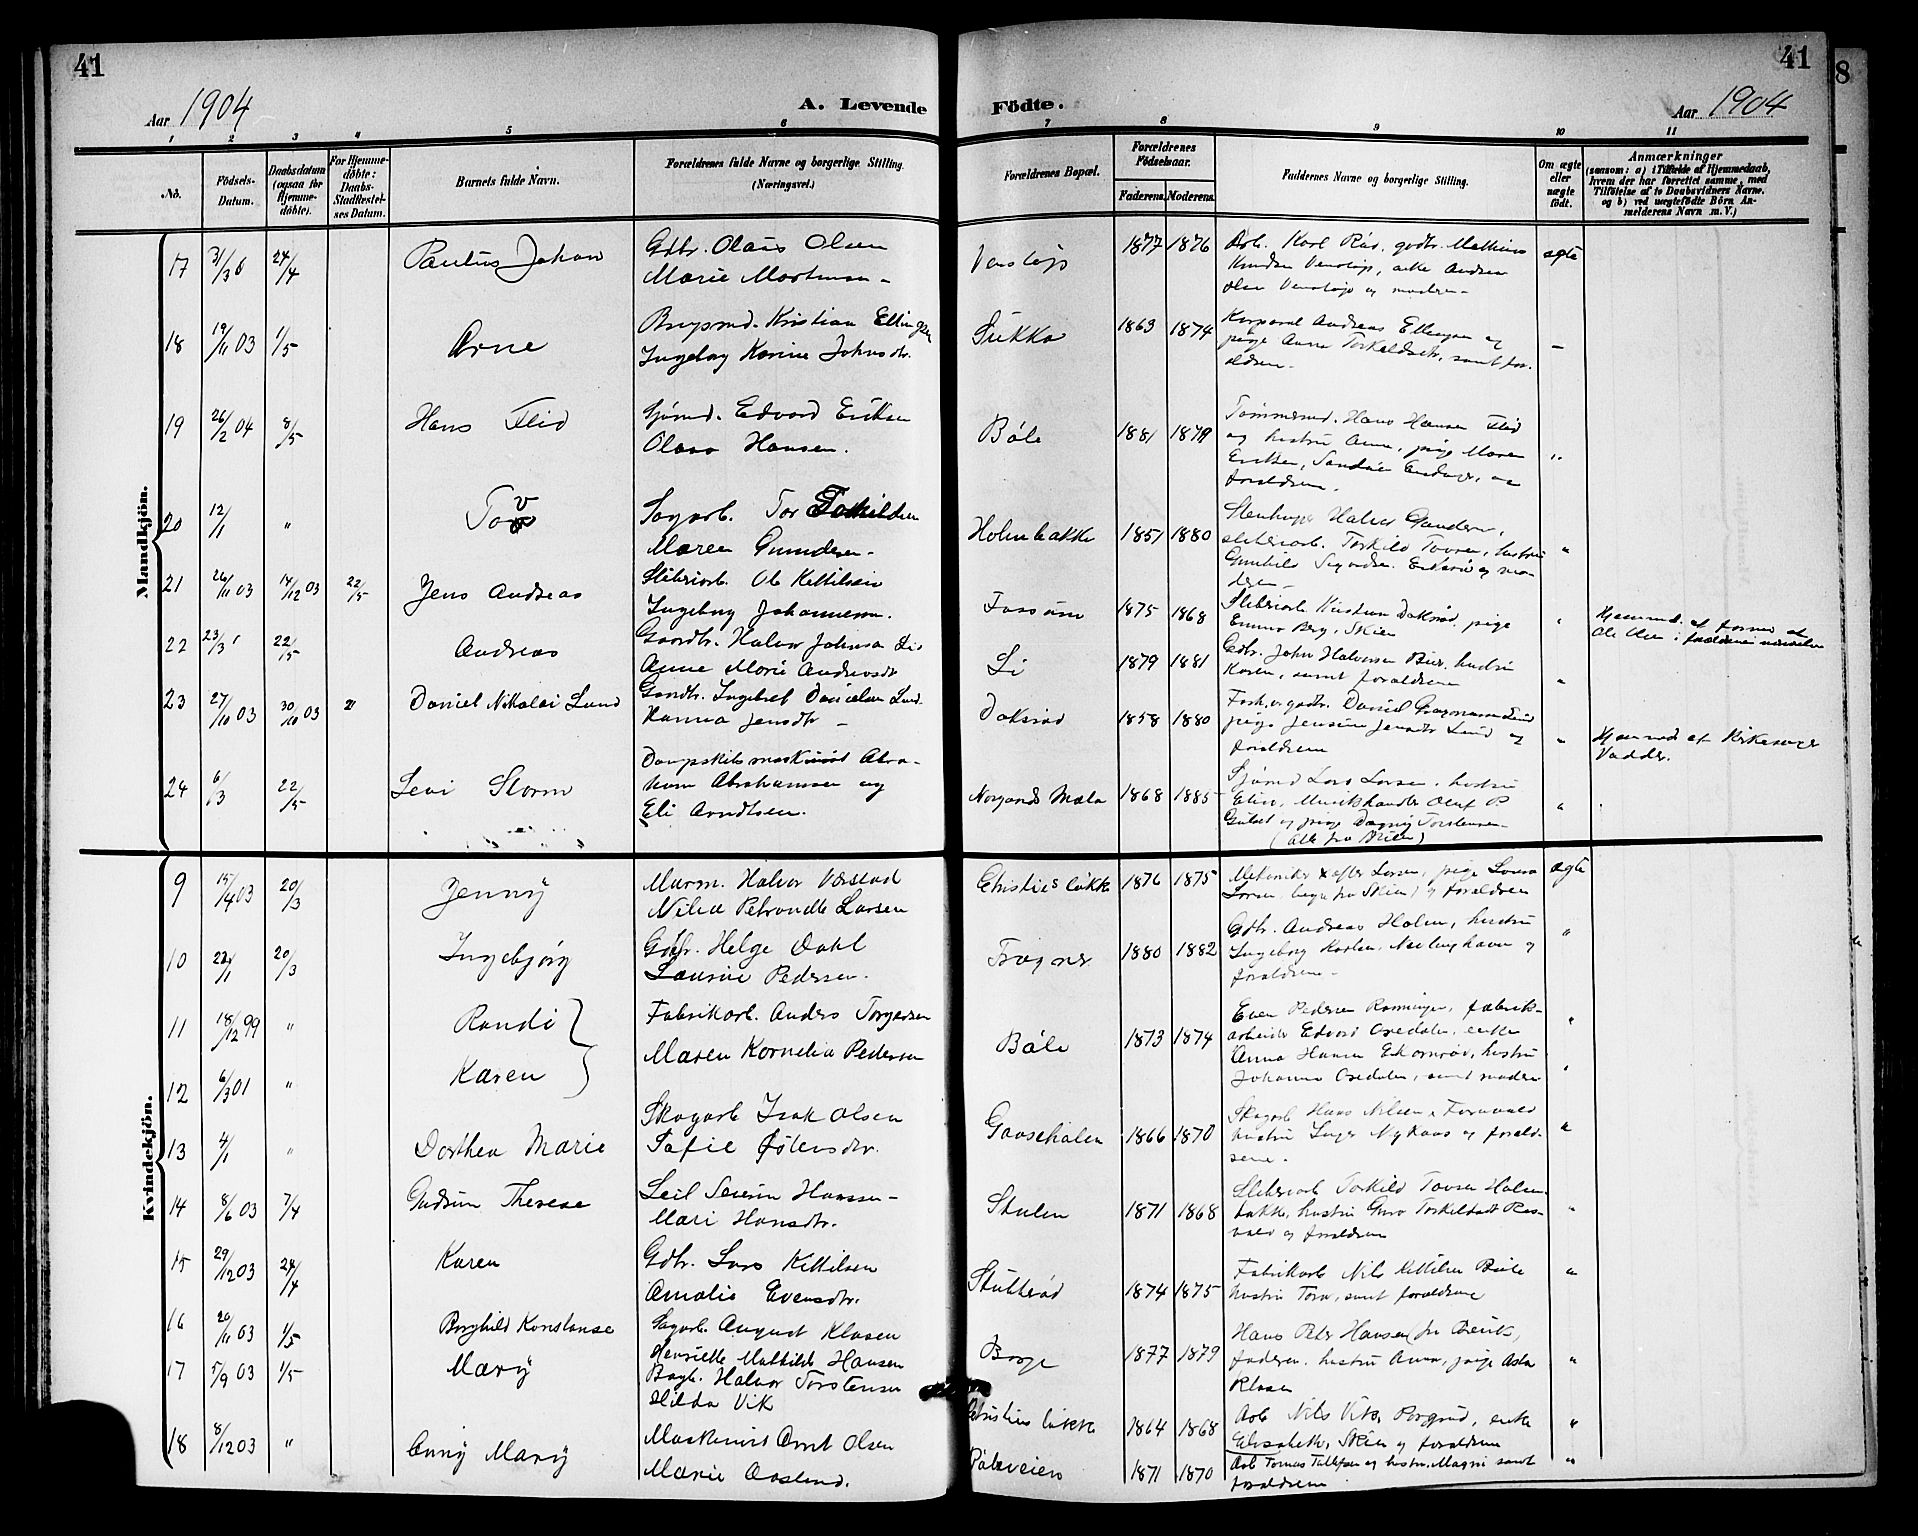 41
41
8
Aar 1904
A. Levende
Födte.
Aar 1904
1 2 3 4 5 6 7 8 9 10 11
No.
Födsels-Datum.
Daabsdatum (ogsaa for Hjemme-döbte).
For Hjemme-döbte: Daabs-Stadfæstel-ses Datum.
Barnets fulde Navn.
Forældrenes fulde Navne og borgerlige Stilling.
(Næringsvei.)
Forældrenes Bopæl.
Forældrenes Födselsaar.
Faderens. Moderens.
Faddernes Navne og borgerlige Stilling.
Om ægte eller uægte födt.
Anmærkninger
(saasom: a) i Tilfælde af Hjemmedaab,
hvem der har forrettet samme, med
Tilföielse af to Daabsvidners Navne.
og b) ved uægtefödte Börn An-
melderens Navn m. V.)
Mandkjön.
17 24/4 Paulus Johan
Gdbr. Olaus Olsen
Marie Mortensen
Venstøp 1877 1876
Arb. Karl Rås, gdbr. Mathias
Knudsen Venstøp, enke Andrea
Olsen Venstøp og moderen
ægte
18 19/11 03 1/5 Arne
Brugsmd. Kristian Ellingsen
Ingeborg Karine Johnsdtr.
1863 1874
Korporal Andreas Ellingsen og
pige Anna Torkildsdtr, samt for-
ældrene
19 26/2 04 8/5 Hans Flid
Sjømd. Edvard Eriksen
Olava Hansen.
Bøle 1881 1879
Tømmermd. Hans Hansen Flid
og hustru Anna, pige Maren
Eriksen,
forældrene.
20 12/1 " Tov
Sagarb. Tor Torkildsen
Maren Gundersen
Holmbakke 1851 1880
Halvor Gundersen,
sliberiarb. Torkild Tovsen, hustru
Gunhild
21 26/11 03 14/12 03 22/5 Jens Andreas
Sliberiarb. Ole Kittilsen
Ingeborg Johannesen.
Fossum 1875 1868
Sliberiarb. Kristian Doksrød, pige
Emma Berg, Skien
"
Hjemmed. af
22 22/5 Andreas
Gaardbr. Halvor Johnsen Li
Anne Marie Andreasdtr
Li 1879 1881
Gdbr. John Halvorsen Bier, hustru
Karen, samt forældrene
"
23 27/10 03 30/10 03 " Daniel Nikolai Lund
Gaardbr. Ingebret Danielsen Lund
Hanna Jensdtr
Doksrød 1858 1880
Daniel
pige Jensine Jensdtr Lund og
forældrene
"
Hjemmed. af Kirkesanger
Vadder.
24 6/3 22/5 Levi Storm
Dampskibsmaskinist Abra-
ham Abrahamsen og
Eli Arndtsen.
Norgards Mæla 1868 1885
Sjømd Lars Larsen, hustru
Elise, Musikhandler Oluf P.
Gulset og pige Dagny Torstensen
(Alle fra Skien)
"
Kvindekjön.
9 15/4 03 20/3 Jenny
Murm. Halvor Værstad
Nilia Petronelle Larsen
Christies løkke 1876 1875
pige Lovisa
Larsen, begge fra Skien, og forældrene
ægte
10 22/1 20/3 Ingebjørg
Gdbr. Helge Dahl
Laurine Pedersen.
Trogner 1880 1882
Gdbr. Andreas Holm, hustru
Ingeborg Karlsen og
forældrene
"
11 18/12 99 " Randi
Fabrikarb. Anders Torgersen
Maren Kornelia Pedersen
Bøle 1873 1874
Even Pedersen Ramningen, fabrik-
arbeider Edvard Oredalen, enke
Anna Hansen Ekornrød, hustru
Johanna Oredalen, samt moderen
"
12 6/3 01 " Karen
13 4/1 " Dorthea Marie
Skogarb Isak Olsen
Sofie
Gaasehølen 1866 1870
Skogarb Hans Nilsen,
hustru Inger Nykaas og foræld-
rene.
"
14 8/6 03 7/4 Gudrun Therese
Leil Severin Hanssen
Mari Hansdtr.
Stulen 1871 1868
Sliberiarb Torkild Tovsen Holm-
bakke, hustru Guro Torkildsdtr
og forældrene
"
15 29/12 03 24/4 Karen
Gdbr. Lars Kittilsen
Amalie Evensdtr.
Stutterød 1874 1875
Fabrikarb Nils Kittilsen Bøle
hustru Tora, samt forældrene
"
16 20/11 03 1/5 Borghild Konstanse
Sagarb. August Klasen
Henriette Mathilde Hansen
Borge 1877 1879
Hans Peter Hansen
faderen, hustru Anna, pige Asta
Klasen
"
17 5/9 03 1/5 Mary
Bagh. Halvor Torstensen
Hilda Vik
Christies løkke 1864 1868
Arb Nils Vik, Borgerud, enke
Elisabeth, Skien og forældrene
"
18 8/12 03 " Anny Mary
Maskinist Arnt Olsen
Marie Aaslund.
Bøleveien 1871 1870
Arb Tomas Tallefsen og hustru Magni samt
forældrene
"